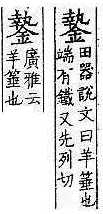 䥍田器說文曰羊箠也
端有鐵又先列切
䥍廣雅云
羊箠也